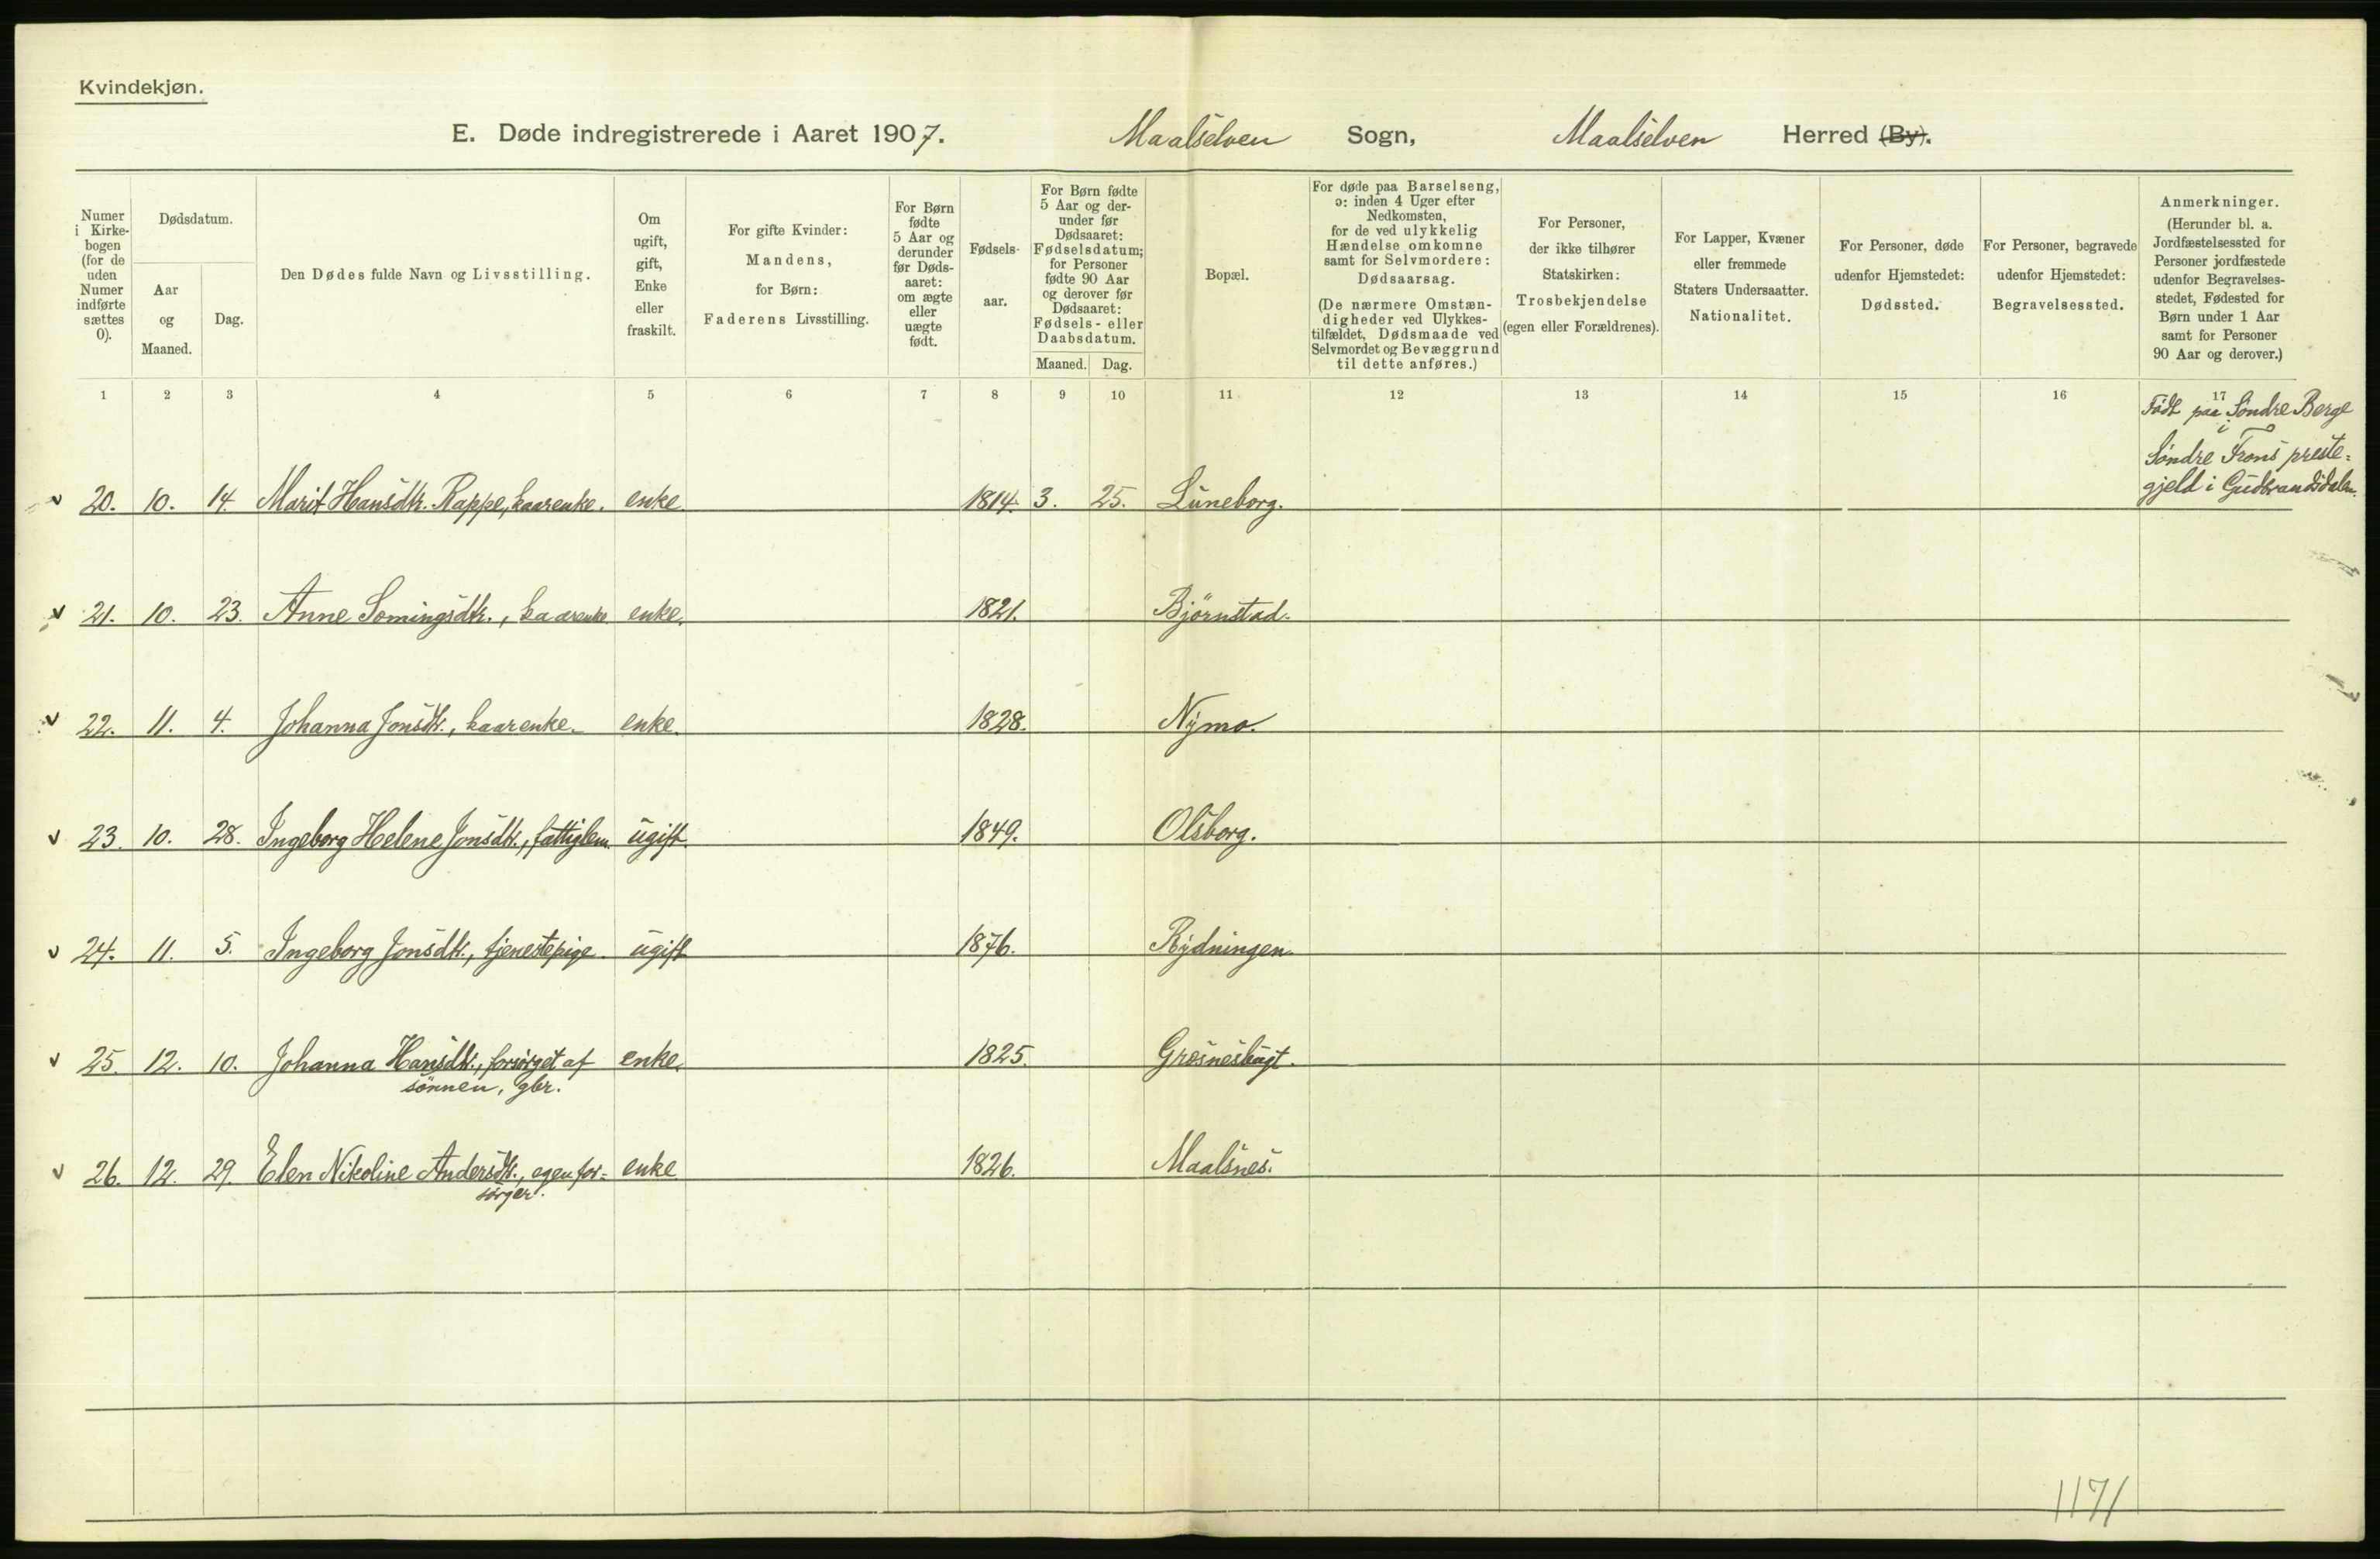 Kvindekjøn.
E. Døde indregistrerede i Aaret 1907. Maalselven Sogn, Maalselven Herred (By).
Numer i Kirke-bogen (for de uden Numer indførte sættes 0).
Dødsdatum.
Aar og Maaned.
Dag.
Den Dødes fulde Navn og Livsstilling.
Om ugift, gift, Enke eller fraskilt.
For gifte Kvinder: Mandens, for Børn: Faderens Livsstilling.
For Børn fødte 5 Aar og derunder før Døds-aaret: om ægte eller uægte født.
Fødsels-aar.
For Børn fødte 5 Aar og der-under før Dødsaaret: Fødselsdatum; for Personer fødte 90 Aar og derover før Dødsaaret: Fødsels- eller Daabsdatum.
Maaned. Dag.
Bopæl.
For døde paa Barselseng, ɔ: inden 4 Uger efter Nedkomsten, for de ved ulykkelig Hændelse omkomne samt for Selvmordere: Dødsaarsag.
(De nærmere Omstæn-digheder ved Ulykkes-tilfældet, Dødsmaade ved Selvmordet og Bevæggrund til dette anføres.)
For Personer, der ikke tilhører Statskirken: Trosbekjendelse (egen eller Forældrenes).
For Lapper, Kvæner eller fremmede Staters Undersaatter. Nationalitet.
For Personer, døde udenfor Hjemstedet: Dødssted.
For Personer, begravede udenfor Hjemstedet: Begravelsessted.
Anmerkninger.
(Herunder bl. a. Jordfæstelsessted for Personer jordfæstede udenfor Begravelses-stedet, Fødested for Børn under 1 Aar samt for Personer 90 Aar og derover.)
1 2 3 4 5 6 7 8 9 10 11 12 13 14 15 16 17
Født paa Søndre Berge
i
Søndre Frons preste=
gjeld i Gudbrandsdalen.
v 20. 10. 14. Marit Hansdtr. Rappe, kaarenke. enke 1814. 3. 25. Luneborg.
v 21. 10. 23. Anne Somingsdtr., kaarenke enke. 1821. Björnstad.
v 22. 11. 4. Johanna Jonsdtr., kaarenke. enke. 1828. Nymo.
v 23. 10. 28. Ingeborg Helene Jonsdtr., fattiglem. ugift. 1849. Olsborg.
v 24. 11. 5. Ingeborg Jonsdtr., tjenestepige. ugift 1876. Rydningen.
v 25. 12. 10. Johanna Hansdtr., forsörget af enke. 1825. Gresnesbugt.
sönnen, gbr.
v 26. 12. 29. Elen Nikoline Andersdtr., egen for= enke 1826. Maalsnes.
sörger.
1171